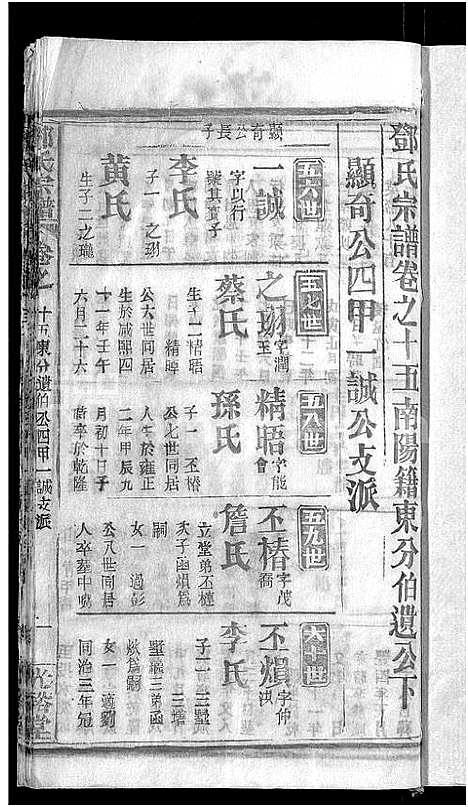 鄧氏宗譜卷之十五南陽籍東分伯遺公下
顯奇公四甲一誠公支派
顯奇公長子
五六世
一誠
字以行
李氏
子一 之珝
黃氏
生子二之瓏
五七世
之珝
字潤玉
蔡氏
生子二精晤
精暐
公六世同居
生於咸熙四
十一年壬午
六月二十六
五八世
精晤
字能會
孫氏
子一 丕椿
公七世同居
人生於雍正
二年甲辰九
月初十日子
時卒於乾隆
五九世
丕椿
字茂喬
詹氏
立堂弟丕槤
次子函熉爲
嗣
女一 適彭
公八世同居
人卒葬中
六十世
丕熉
字仲洪
李氏
子二 三墅
三㙷
墅繼三弟函
爲嗣
女一 適劉
同治三年冠
鄧氏宗譜
卷之十五東分遺伯公四甲一誠支派
一